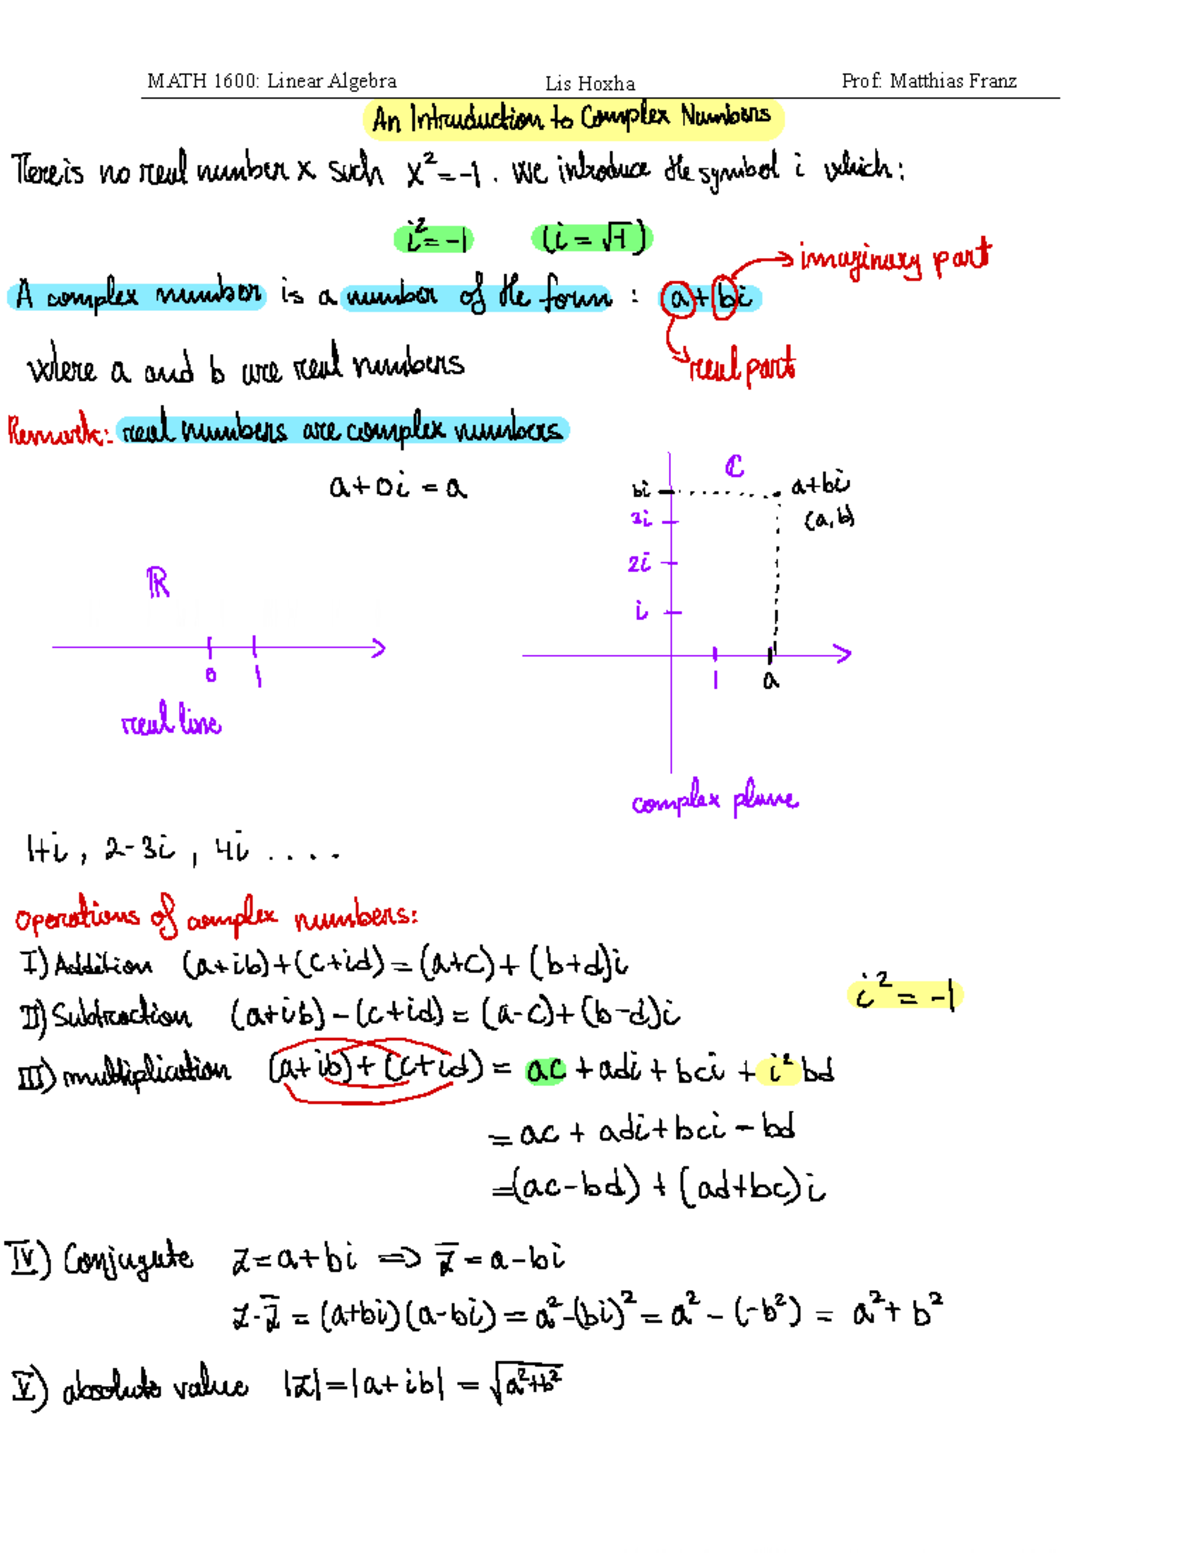 MATH 1600: Linear Algebra Lis Hoxha Prof: Matthias Franz
An Introduction to Complex Numbers
There is no real number x such x² = -1. We introduce the symbol i which:
i² = -1 (i = √-1)
imaginary part
A complex number is a number of the form : a + bi
where a and b are real numbers
real part
Remark: real numbers are complex numbers
a + 0i = a
ℂ
bi a+bi
3i (a,b)
2i
ℝ
i
0 1
1 a
real line
complex plane
1+i , 2-3i , 4i ....
Operations of complex numbers:
I) Addition (a+ib)+(c+id) = (a+c) + (b+d)i
i² = -1
II) Subtraction (a+ib) - (c+id) = (a-c)+(b-d)i
III) multiplication (a+ib)+(c+id) = ac + adi + bci + i²bd
= ac + adi + bci - bd
= (ac-bd) + (ad+bc)i
IV) Conjugate z = a + bi ⟹ z̅ = a - bi
z·z̅ = (a+bi)(a-bi) = a² - (bi)² = a² - (-b²) = a² + b²
V) absolute value |z| = |a+ib| = √a²+b²